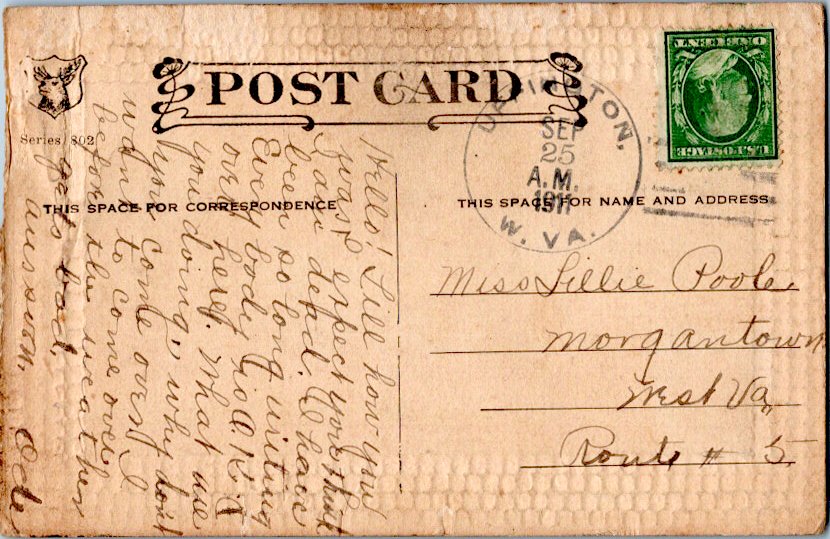 POST CARD
Series 802
THIS SPACE FOR CORRESPONDENCE
THIS SPACE FOR NAME AND ADDRESS
U.S. POSTAGE
ONE CENT
SEP
25
A.M.
1911
W. VA.
Hello! Lill how you
was I expect you think
I am dead. I have
been so long writing
Every body is O.K.
over here. What are
you doing, why don't
you come over I
want to come over
before the weather
gets bad.
answer.
Miss Lillie Poole
Morgantown
West Va
Route # 5